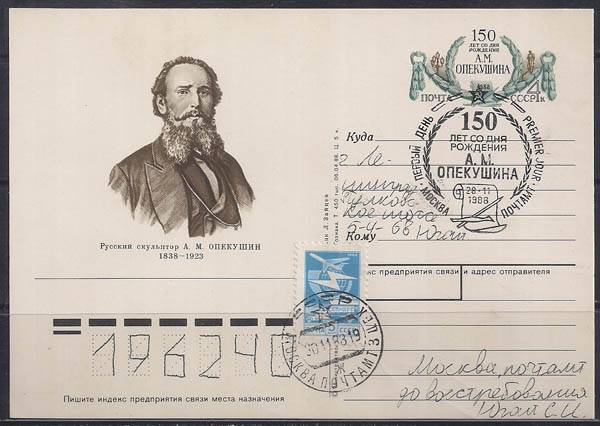 150
ЛЕТ СО ДНЯ
РОЖДЕНИЯ
А.М.
ОПЕКУШИНА
1988
ПОЧТА СССР 4к
ПЕРВЫЙ ДЕНЬ
PREMIER JOUR
150
ЛЕТ СО ДНЯ
РОЖДЕНИЯ
А. М.
ОПЕКУШИНА
28-11
1988
МОСКВА ПОЧТАМТ
Русский скульптор А. М. ОПЕКУШИН
1838—1923
Куда
г. Ле
Кому
5-4-66 Югай
Индекс предприятия связи и адрес отправителя
СССР
30 11 88 19
МОСКВА ПОЧТАМТ
196240
Пишите индекс предприятия связи места назначения
Москва, почтамт
до востребования
Югай С.И.